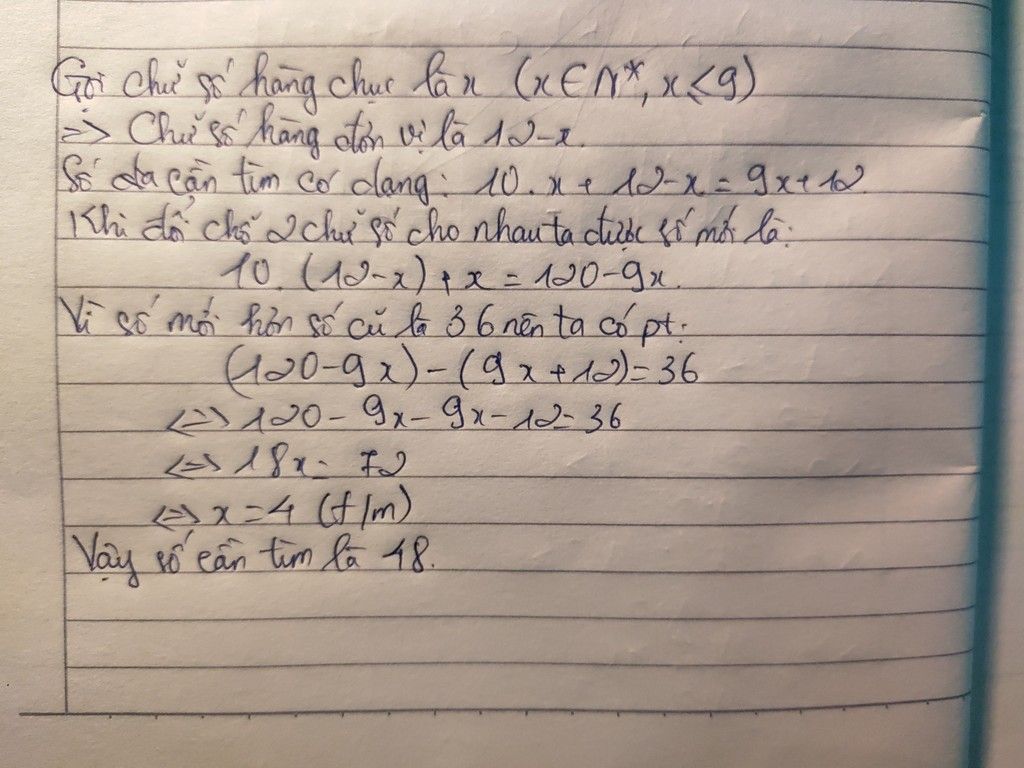 Gọi chữ số hàng chục là x (x∈N*, x≤9)
=> Chữ số hàng đơn vị là 12-x.
Số đa cần tìm có dạng: 10.x + 12-x = 9x+12
Khi đổi chỗ 2 chữ số cho nhau ta được số mới là:
10.(12-x)+x = 120-9x.
Vì số mới hơn số cũ là 36 nên ta có pt:
(120-9x)-(9x+12)=36
<=> 120-9x-9x-12=36
<=> 18x = 72
<=> x=4 (t/m)
Vậy số cần tìm là 48.